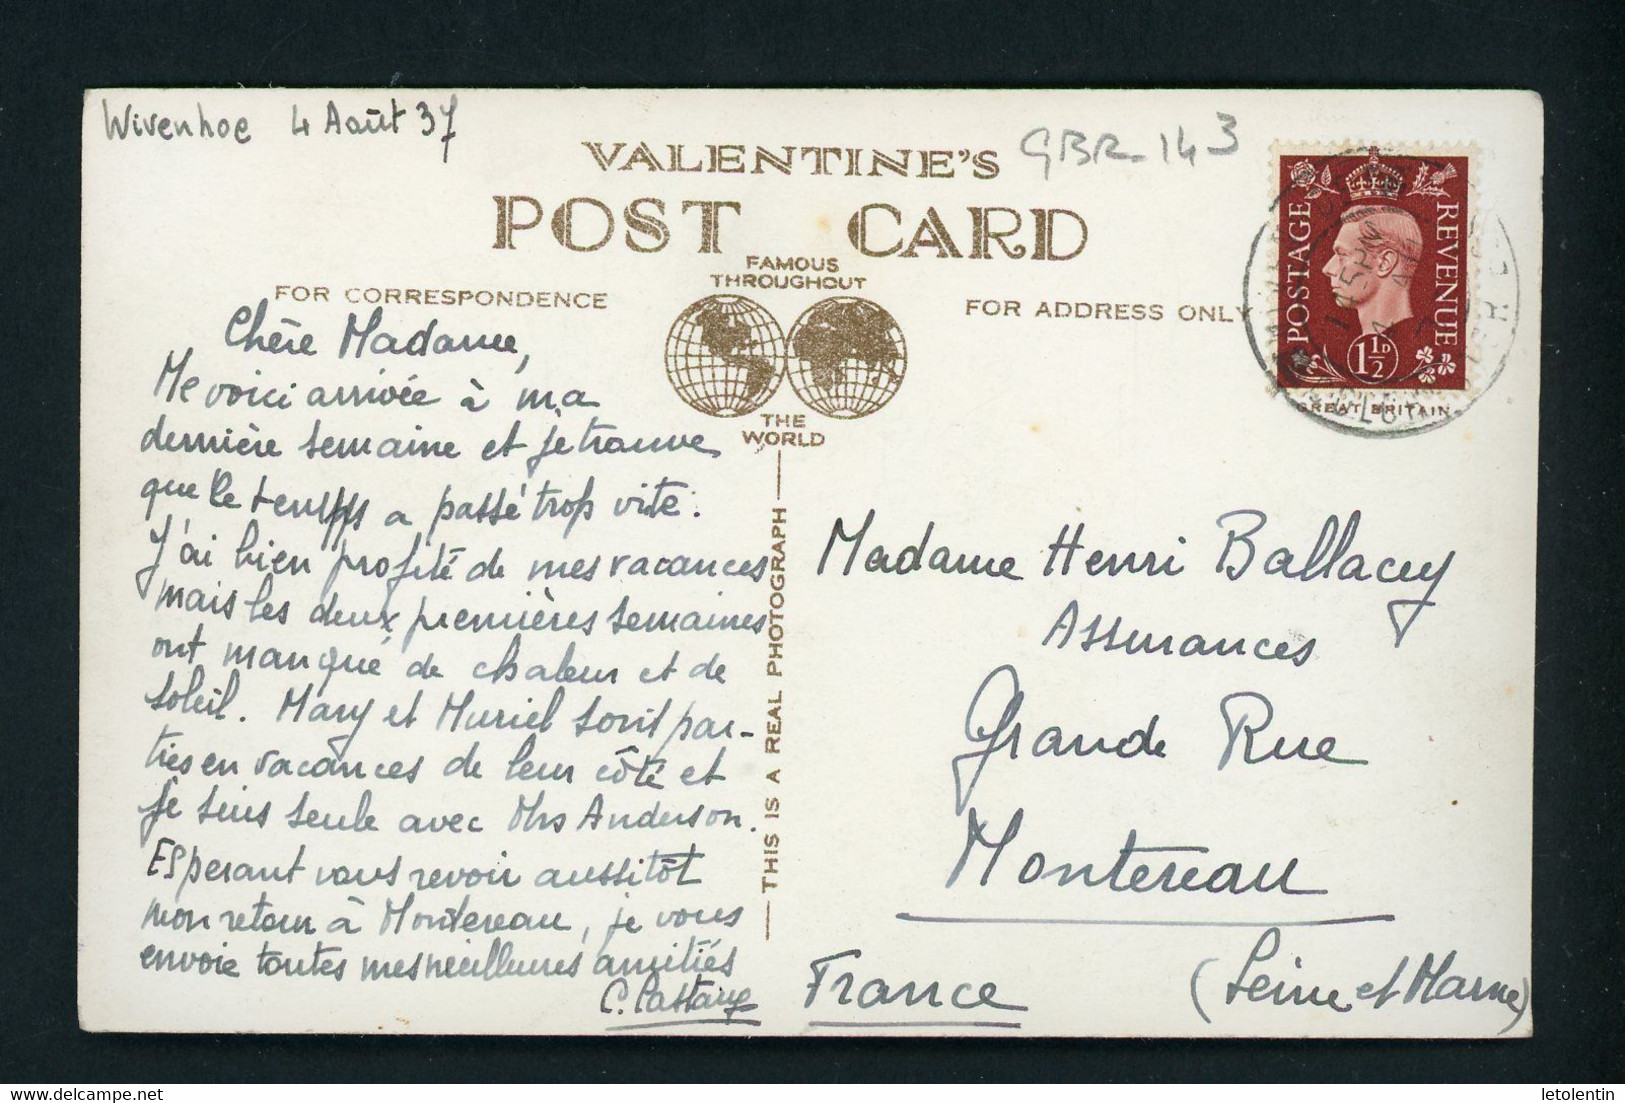 Wivenhoe 4 Août 37
GBR-143
VALENTINE'S
POST CARD
FAMOUS
THROUGHOUT
THE
WORLD
FOR CORRESPONDENCE
FOR ADDRESS ONLY
POSTAGE
REVENUE
1½D
GREAT BRITAIN
Chère Madame,
Me voici arrivée à ma
dernière semaine et je trouve
que le temps a passé trop vite.
J'ai bien profité de mes vacances
mais les deux premières semaines
ont manqué de chaleur et de
soleil. Mary et Muriel sont par-
ties en vacances de leur côté et
je suis seule avec Mrs Anderson.
Espérant vous revoir aussitôt
mon retour à Montereau, je vous
envoie toutes mes meilleures amitiés
C.
THIS IS A REAL PHOTOGRAPH
Madame Henri Ballacey
Assurances
Grande Rue
Montereau
(Seine et Marne)
France
letolentin